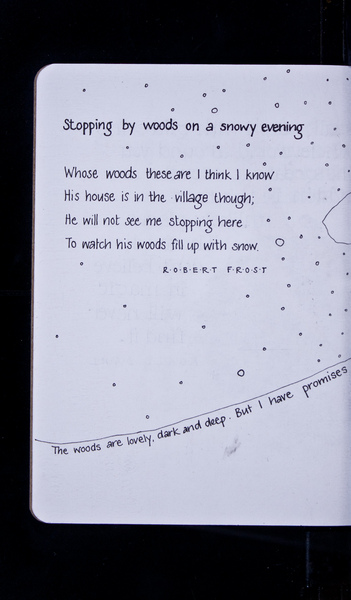 Stopping by woods on a snowy evening
Whose woods these are I think I know
His house is in the village though;
He will not see me stopping here
To watch his woods fill up with snow.
R·O·B·E·R·T F·R·O·S·T
The woods are lovely, dark and deep. But I have promises